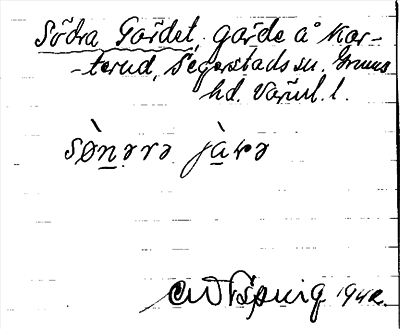 Södra Gärdet, gärde å Kar-
-terud, Segerstads sn. Grums
hd. Värml. l.
sø̀nərə jàɹə
1942.